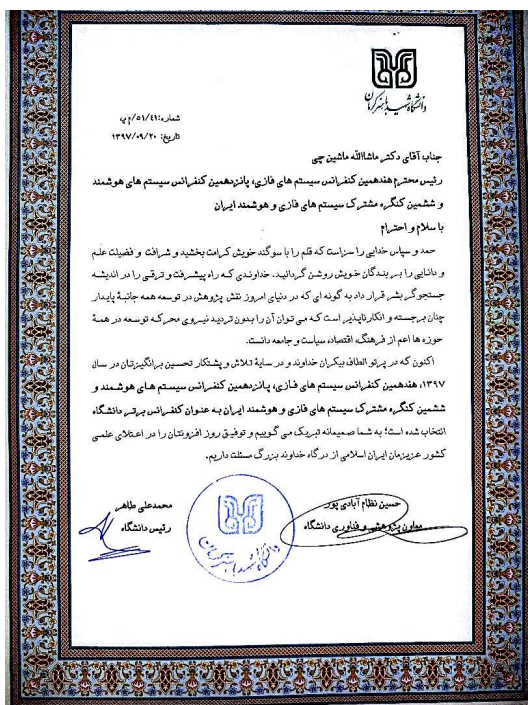 دانشگاه شهید باهنر کرمان
شماره: ۵۱/۴۱/م پ
تاریخ: ۱۳۹۷/۰۹/۲۰
جناب آقای دکتر ماشاالله ماشین چی
رئیس محترم هفدهمین کنفرانس سیستم های فازی، پانزدهمین کنفرانس سیستم های هوشمند
و ششمین کنگره مشترک سیستم های فازی و هوشمند ایران
با سلام و احترام
حمد و سپاس خدایی را سزاست که قلم را با سوگند خویش کرامت بخشید و شرافت و فضیلت علم
و دانایی را بر بندگان خویش روشن گردانید. خداوندی که راه پیشرفت و ترقی را در اندیشه
جستجوگر بشر قرار داد به گونه ای که در دنیای امروز نقش پژوهش در توسعه همه جانبۀ پایدار
چنان برجسته و انکارناپذیر است که می توان آن را بدون تردید نیروی محرکه توسعه در همۀ
حوزه ها اعم از فرهنگ، اقتصاد، سیاست و جامعه دانست.
اکنون که در پرتو الطاف بیکران خداوند و در سایۀ تلاش و پشتکار تحسین برانگیزتان در سال
۱۳۹۷، هفدهمین کنفرانس سیستم های فازی، پانزدهمین کنفرانس سیستم های هوشمند و
ششمین کنگره مشترک سیستم های فازی و هوشمند ایران به عنوان کنفرانس برتر دانشگاه
انتخاب شده است؛ به شما صمیمانه تبریک می گوییم و توفیق روز افزونتان را در اعتلای علمی
کشور عزیزمان ایران اسلامی از درگاه خداوند بزرگ مسئلت داریم.
حسین نظام آبادی پور
معاون پژوهشی و فناوری دانشگاه
محمدعلی طاهر
رئیس دانشگاه
دانشگاه شهید باهنر کرمان